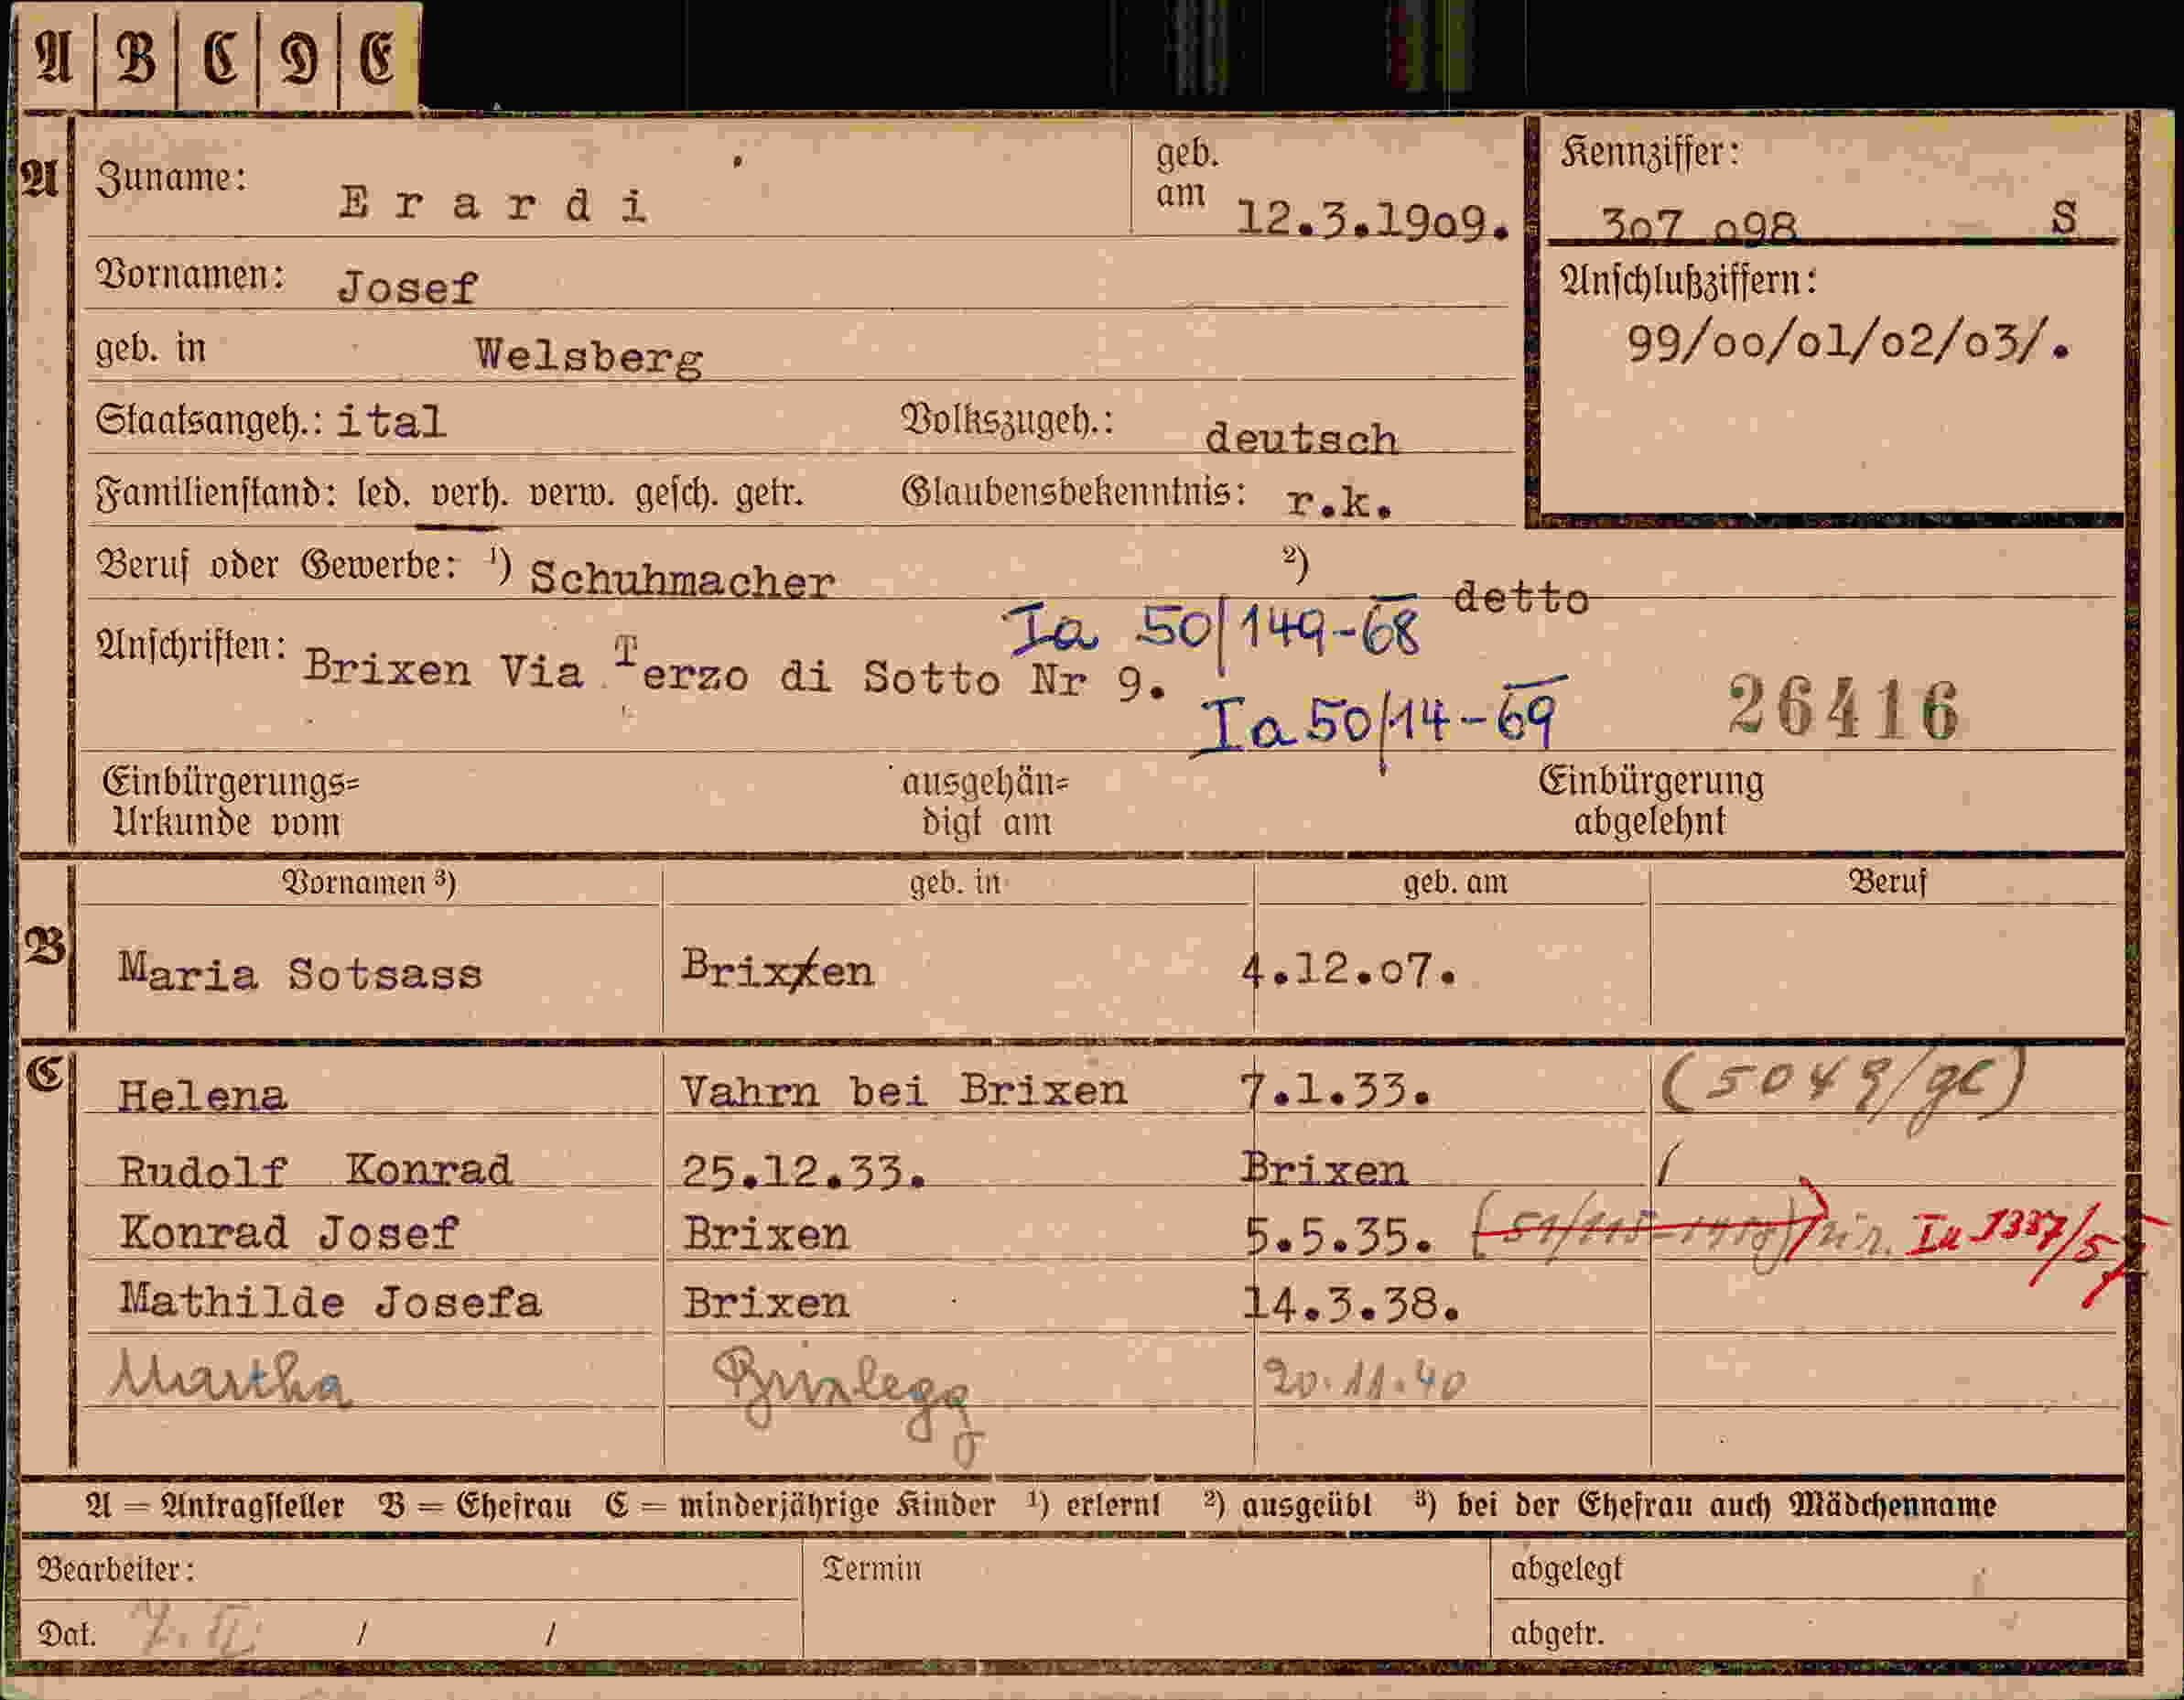 A B C D E
A Zuname: Erardi geb. am 12.3.1909. Kennziffer: 307 098 S
Vornamen: Josef Anschlußziffern:
geb. in Welsberg 99/00/01/02/03/.
Staatsangeh.: ital Volkszugeh.: deutsch
Familienstand: led. verh. verw. gesch. getr. Glaubensbekenntnis: r.k.
Beruf oder Gewerbe: 1) Schuhmacher 2) detto
Ia 50/149-68
Anschriften: Brixen Via Terzo di Sotto Nr 9.
Ia 50/14-69 26416
Einbürgerungs= ausgehän= Einbürgerung
Urkunde vom digt am abgelehnt
Vornamen 3) geb. in geb. am Beruf
B Maria Sotsass Brixxen 4.12.07.
C Helena Vahrn bei Brixen 7.1.33. (5049/gl)
Rudolf Konrad 25.12.33. Brixen (
Konrad Josef Brixen 5.5.35.
Mathilde Josefa Brixen 14.3.38.
Martha Brixlegg 20.11.40
A = Antragsteller B = Ehefrau C = minderjährige Kinder 1) erlernt 2) ausgeübt 3) bei der Ehefrau auch Mädchenname
Bearbeiter: Termin abgelegt
Dat. / / abgetr.